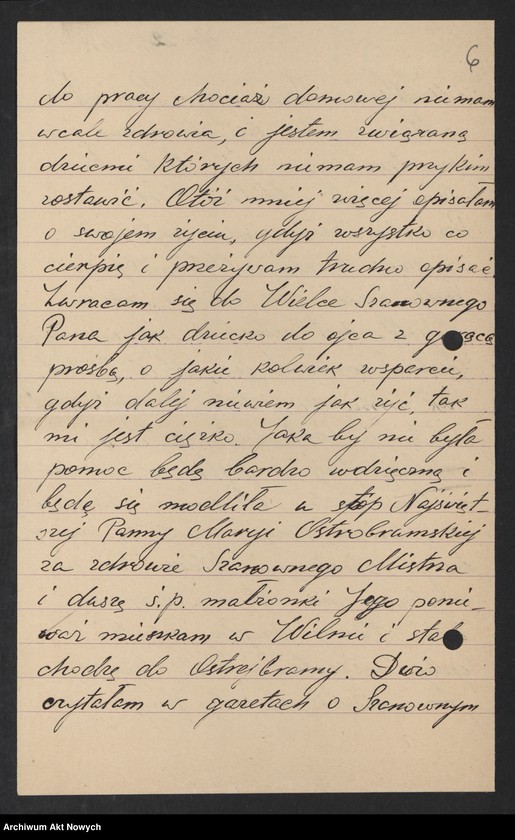 6
do pracy chociaż domowej niemam
wcale zdrowia, i jestem związaną
dziećmi których niemam przykim
zostawić. Otóż mniej więcej opisałam
o swojem życiu, gdyż wszystko co
cierpię i przeżywam trudno opisać.
Zwracam się do Wielce Szanownego
Pana jak dziecko do ojca z gorącą
prośbą, o jakie kolwiek wsparcie,
gdyż dalej niewiem jak żyć, tak
mi jest ciężko. Jaka by nie była
pomoc będę bardzo wdzięczną i
będę się modliła u stóp Najświęt-
szej Panny Maryi Ostrobramskiej
za zdrowie Szanownego Mistrza
i duszę ś.p. małżonki Jego ponie-
waż mieszkam w Wilnie i stale
chodzę do Ostrejbramy. Dużo
czytałam w gazetach o Szanownym
Archiwum Akt Nowych